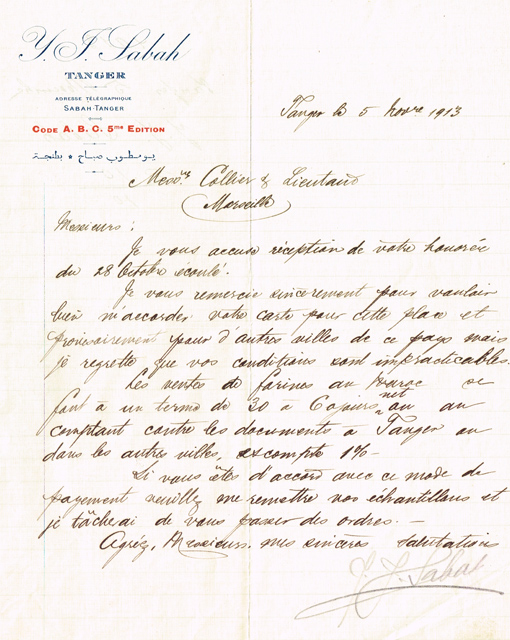 Y. J. Sabah
TANGER
ADRESSE TÉLÉGRAPHIQUE
SABAH-TANGER
CODE A. B. C. 5ME EDITION
يوسطوب صباح * بطنجة
Tanger le 5 Novre 1913
Messrs Collier & Lieutaud
Marseille
Messieurs;
Je vous accuse réception de votre honorée
du 28 Octobre écoulé.
Je vous remercie sincerement pour vouloir
bien m'accorder votre carte pour cette place et
provisoirement pour d'autres villes de ce pays mais
je regrette que vos conditions sont impracticables.
Les ventes de farines au Maroc se
font à un terme de 30 à 60 jours net ou au
comptant contre les documents à Tanger ou
dans les autres villes, excompte 1%-
Si vous êtes d'accord avec ce mode de
payement veuillez me remettre vos échantillons et
je tâcherai de vous passer des ordres. —
Agréez, Messieurs, mes sincères salutations
Y. J. Sabah